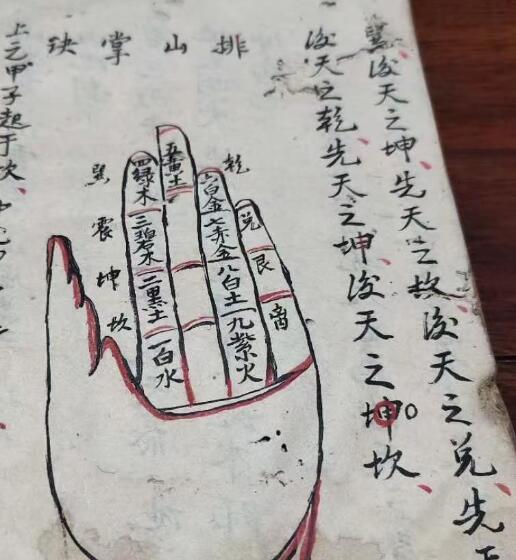 巽、後天之坤、先天之故、後天之兑、先天
後天之乾、先天之坤、後天之坤坎、
排山掌訣
乾
兑
艮
离
六白金
七赤金
八白土
九紫火
五黄土
四绿木
三碧木
二黑土
一白水
巽
震
坤
坎
上之甲子起于坎、